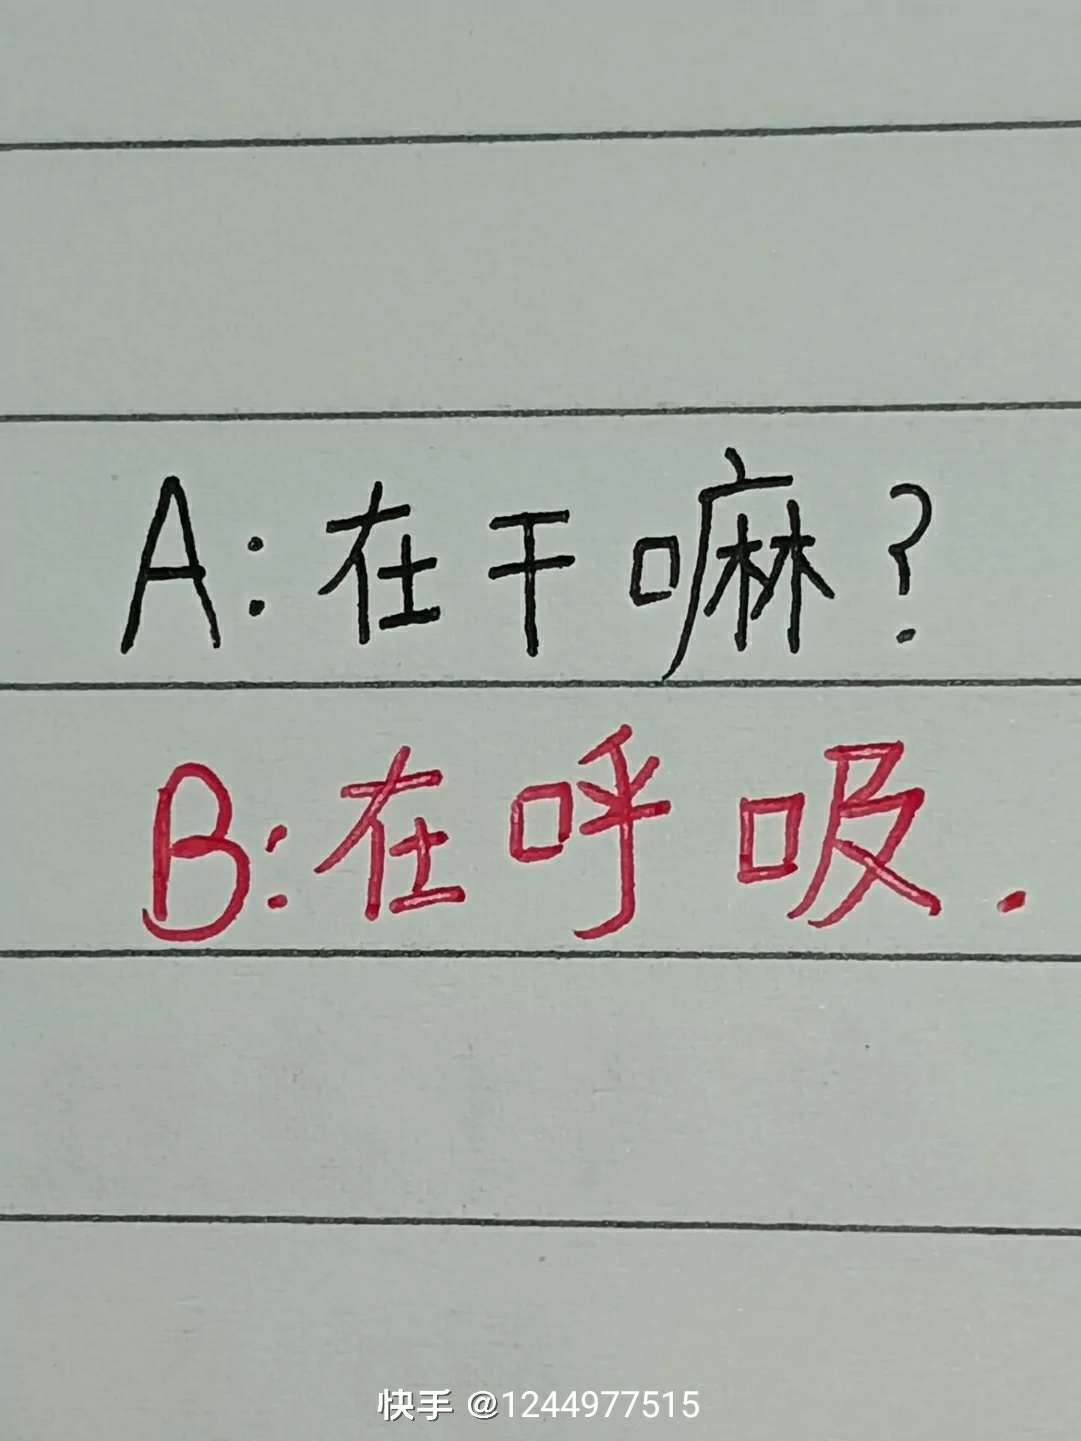 A:在干嘛?
B:在呼吸.
快手 @1244977515